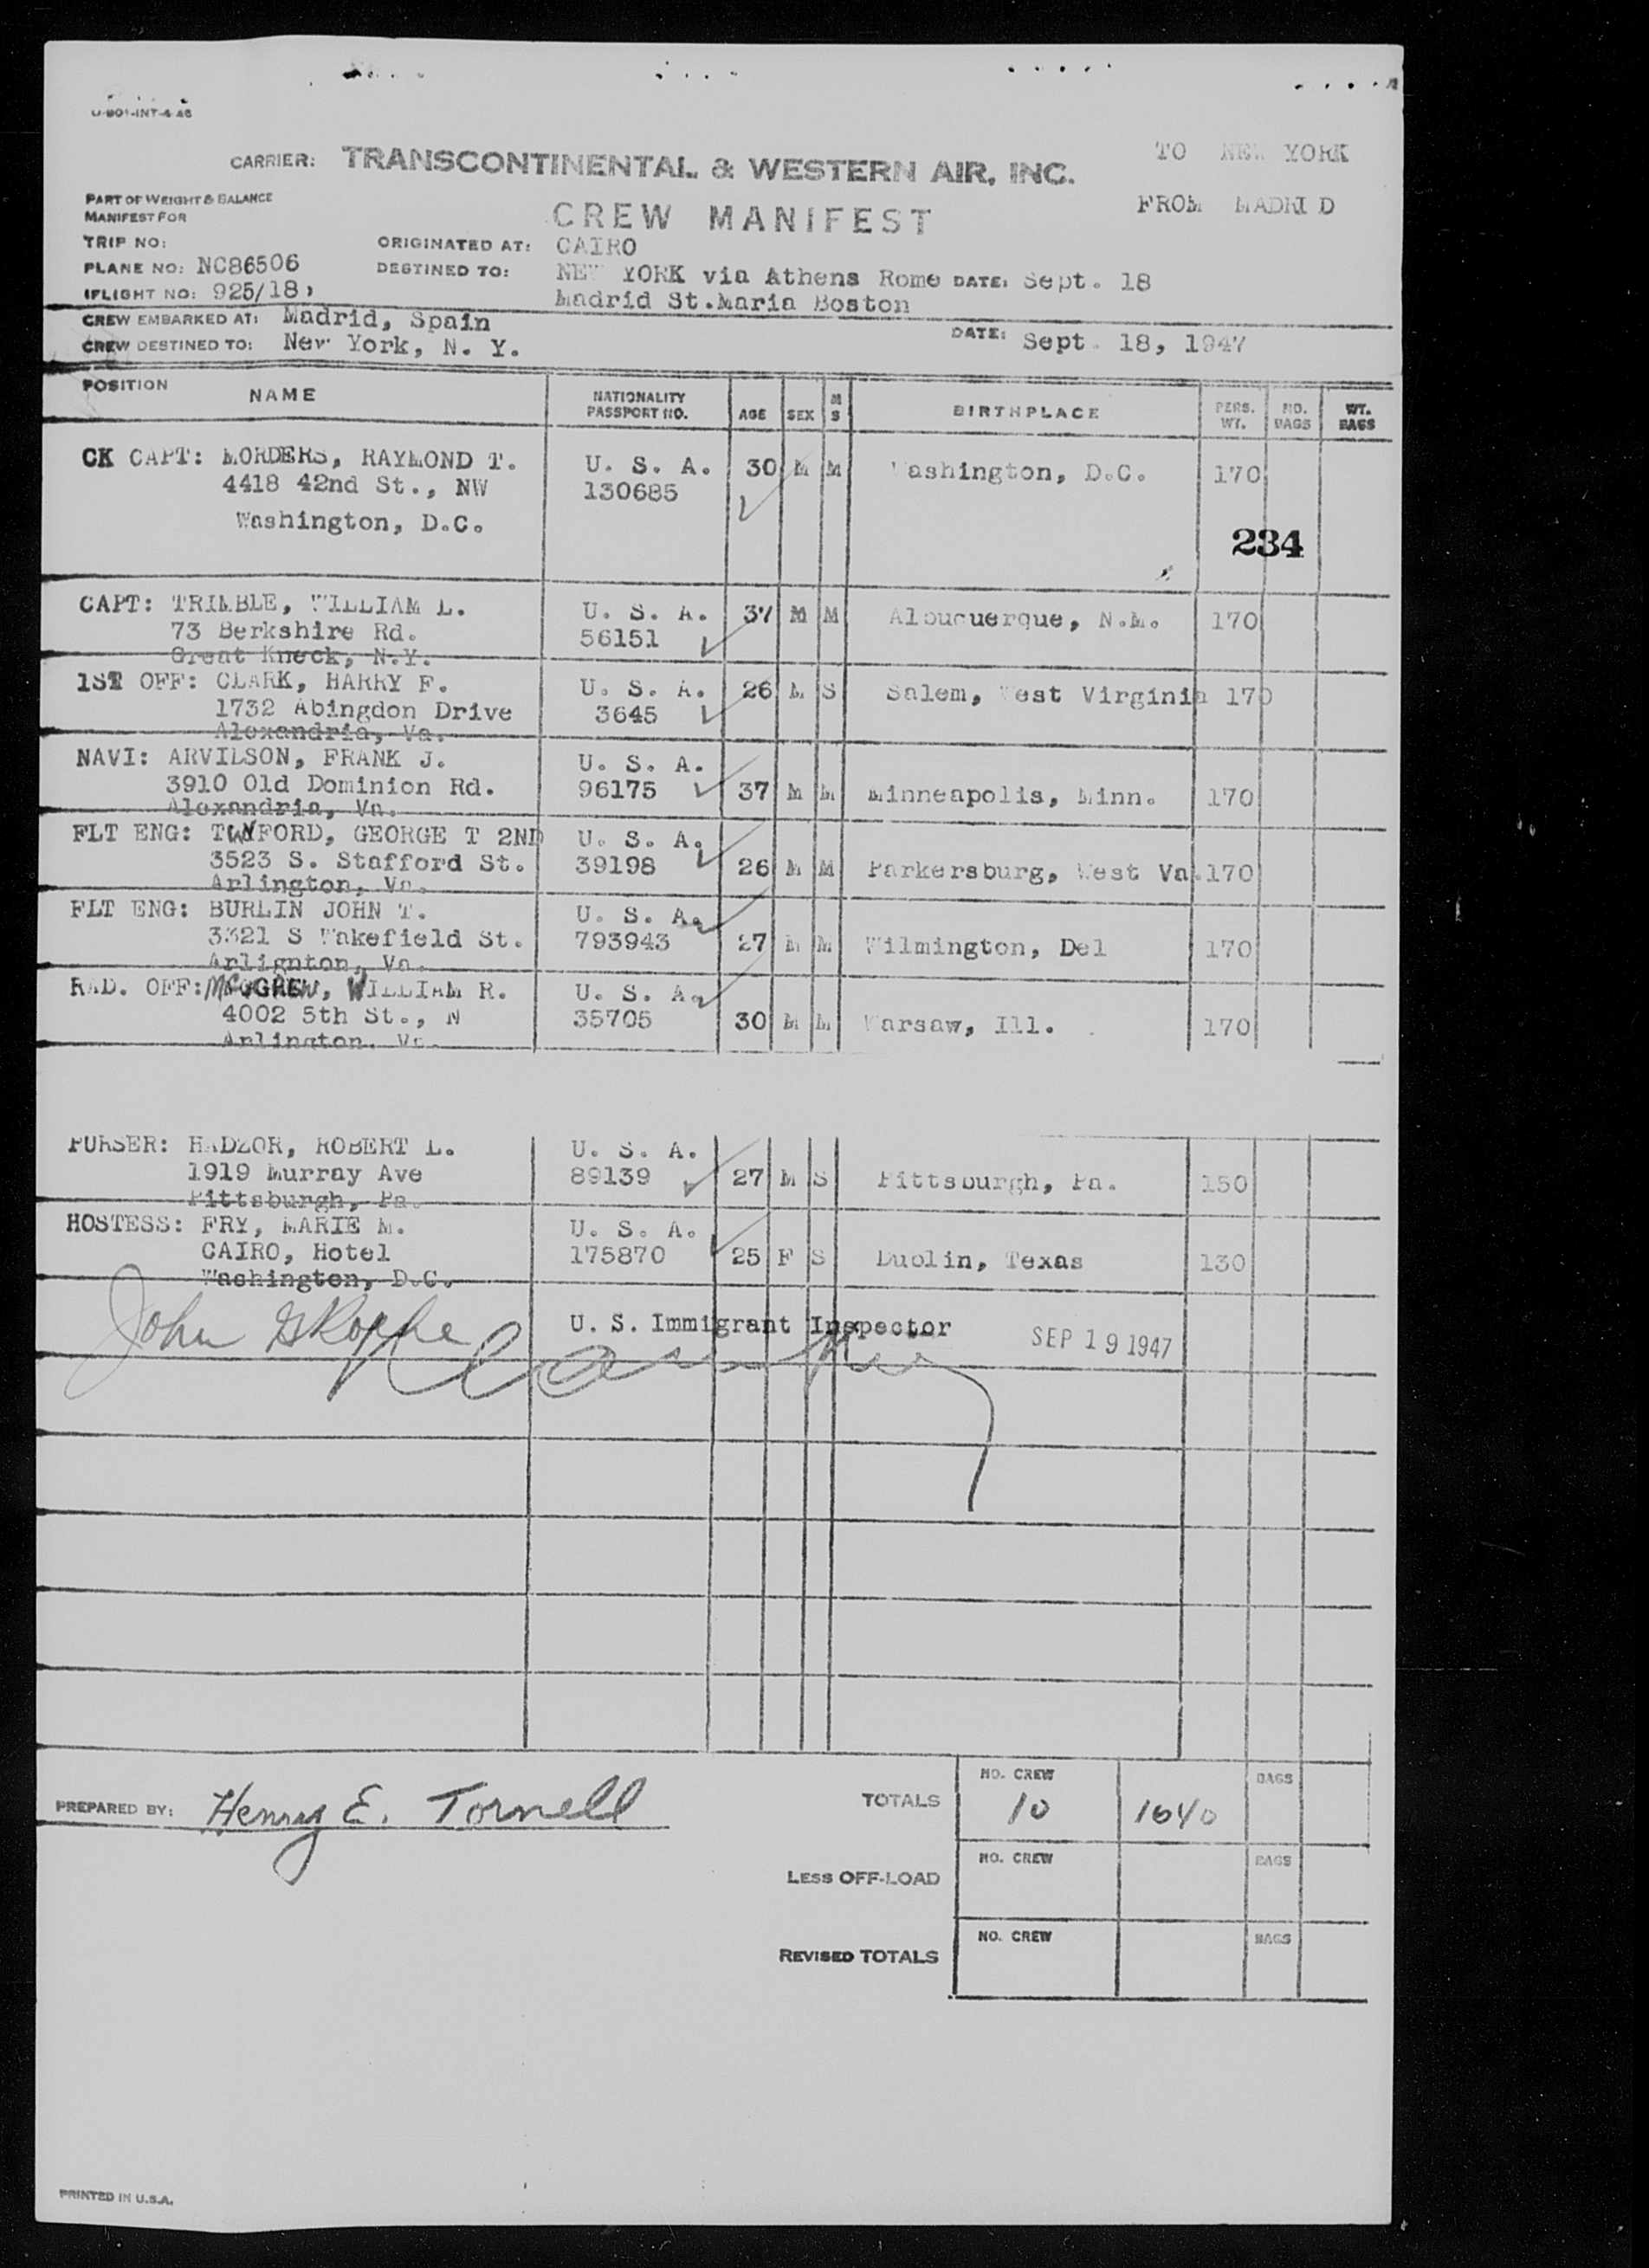 U-901-INT-4-46
CARRIER: TRANSCONTINENTAL & WESTERN AIR, INC.
TO NEW YORK
FROM MADRI D
PART OF WEIGHT & BALANCE
MANIFEST FOR
CREW MANIFEST
TRIP NO:
ORIGINATED AT: CAIRO
PLANE NO: NC86506
DESTINED TO: NEW YORK via Athens Rome DATE: Sept. 18
FLIGHT NO: 925/18,
Madrid St.Maria Boston
CREW EMBARKED AT: Madrid, Spain
CREW DESTINED TO: New York, N. Y.
DATE: Sept. 18, 1947
POSITION NAME NATIONALITY PASSPORT NO. AGE SEX M S BIRTHPLACE PERS. WT. NO. BAGS WT. BAGS
CK CAPT: MORDERS, RAYMOND T. U. S. A. 30 M M Washington, D.C. 170
4418 42nd St., NW 130685
Washington, D.C.
234
CAPT: TRIMBLE, WILLIAM L. U. S. A. 37 M M Albuquerque, N.M. 170
73 Berkshire Rd. 56151
Great Kneck, N.Y.
1ST OFF: CLARK, HARRY F. U. S. A. 26 M S Salem, West Virginia 170
1732 Abingdon Drive 3645
Alexandria, Va.
NAVI: ARVILSON, FRANK J. U. S. A.
3910 Old Dominion Rd. 96175 37 M M Minneapolis, Minn. 170
Alexandria, Va.
FLT ENG: TWYFORD, GEORGE T 2ND U. S. A.
3523 S. Stafford St. 39198 26 M M Parkersburg, West Va. 170
Arlington, Va.
FLT ENG: BURLIN JOHN T. U. S. A.
3321 S Wakefield St. 793943 27 M M Wilmington, Del 170
Arlignton, Va.
RAD. OFF: McGREW, WILLIAM R. U. S. A.
4002 5th St., N 35705 30 M M Warsaw, Ill. 170
Arlington, Va.
PURSER: HADZOR, ROBERT L. U. S. A.
1919 Murray Ave 89139 27 M S Pittsburgh, Pa. 150
Pittsburgh, Pa.
HOSTESS: FRY, MARIE M. U. S. A.
CAIRO, Hotel 175870 25 F S Dublin, Texas 130
Washington, D.C.
John
U. S. Immigrant Inspector
SEP 19 1947
PREPARED BY: Henry E. Tornell
TOTALS NO. CREW 10 1640 BAGS
LESS OFF-LOAD NO. CREW BAGS
REVISED TOTALS NO. CREW BAGS
PRINTED IN U.S.A.